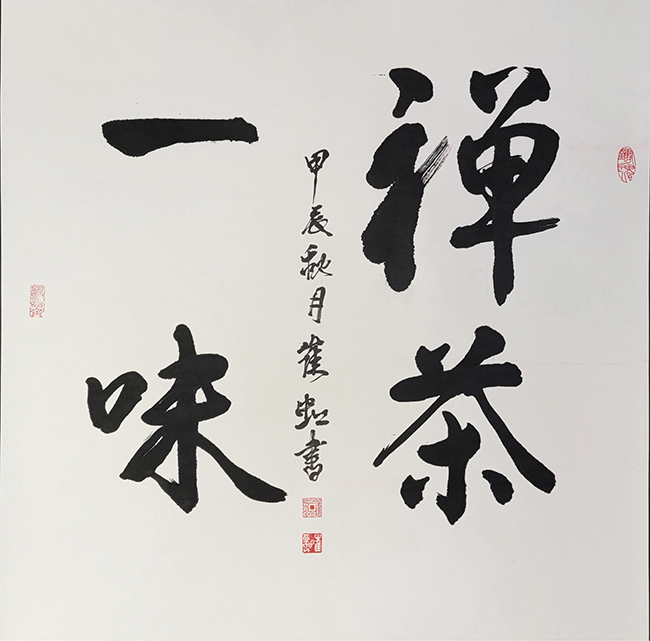 禅茶
一味
甲辰秋月崔虹書